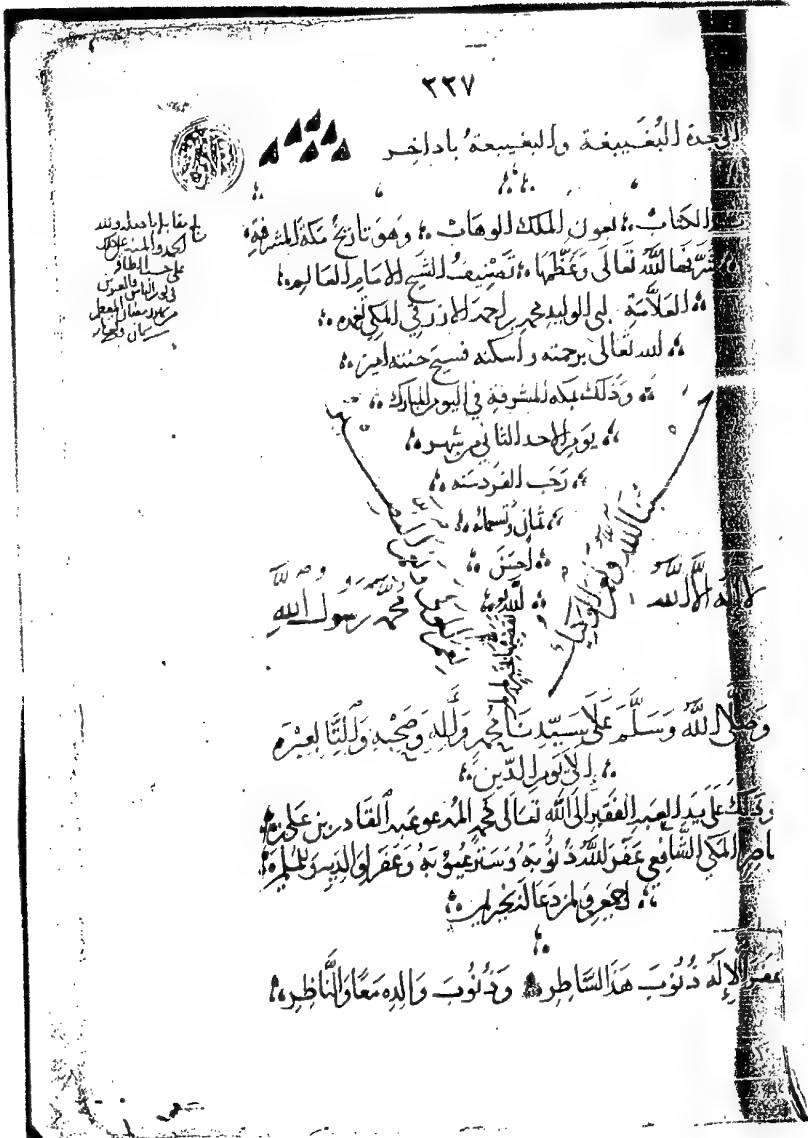 ٢٢٧
الوحدة البُغَيبغة والبغيبغة باداخر
الكتاب بعون الملك الوهاب وهو تاريخ مكة المشرفة
شرفها الله تعالى وعظمها تصنيف الشيخ الامام العالم
العلامة ابى الوليد محمد بن احمد الازرقي المكي تغمده
الله تعالى برحمته واسكنه فسيح جنته امين
وذلك بمكة المشرفة في اليوم المبارك
يوم الاحد الثاني من شهر
رجب الفرد سنه
ثمان وتسمائه
احسن
الله
حسبنا الله ونعم الوكيل
لا اله الا الله
محمد رسول الله
نعم المولى ونعم النصير
وصلى الله وسلم على سيدنا محمد وآله وصحبه والتابعين
إلى يوم الدين
وذلك على يد العبد الفقير الى الله تعالى محمد المدعو عبد القادر بن علي بن
ناصر المكي الشافعي غفر الله ذنوبه وستر عيوبه وغفر لوالديه وللمسلمين
اجمعين ولمن دعا لهم بخير امين
غفر الإله ذنوب هذا الساطر وذنوب والده معا والناظر
بلغ مقابلة باصله ولله
الحمد والمنة على ذلك
على حسب الطاقة